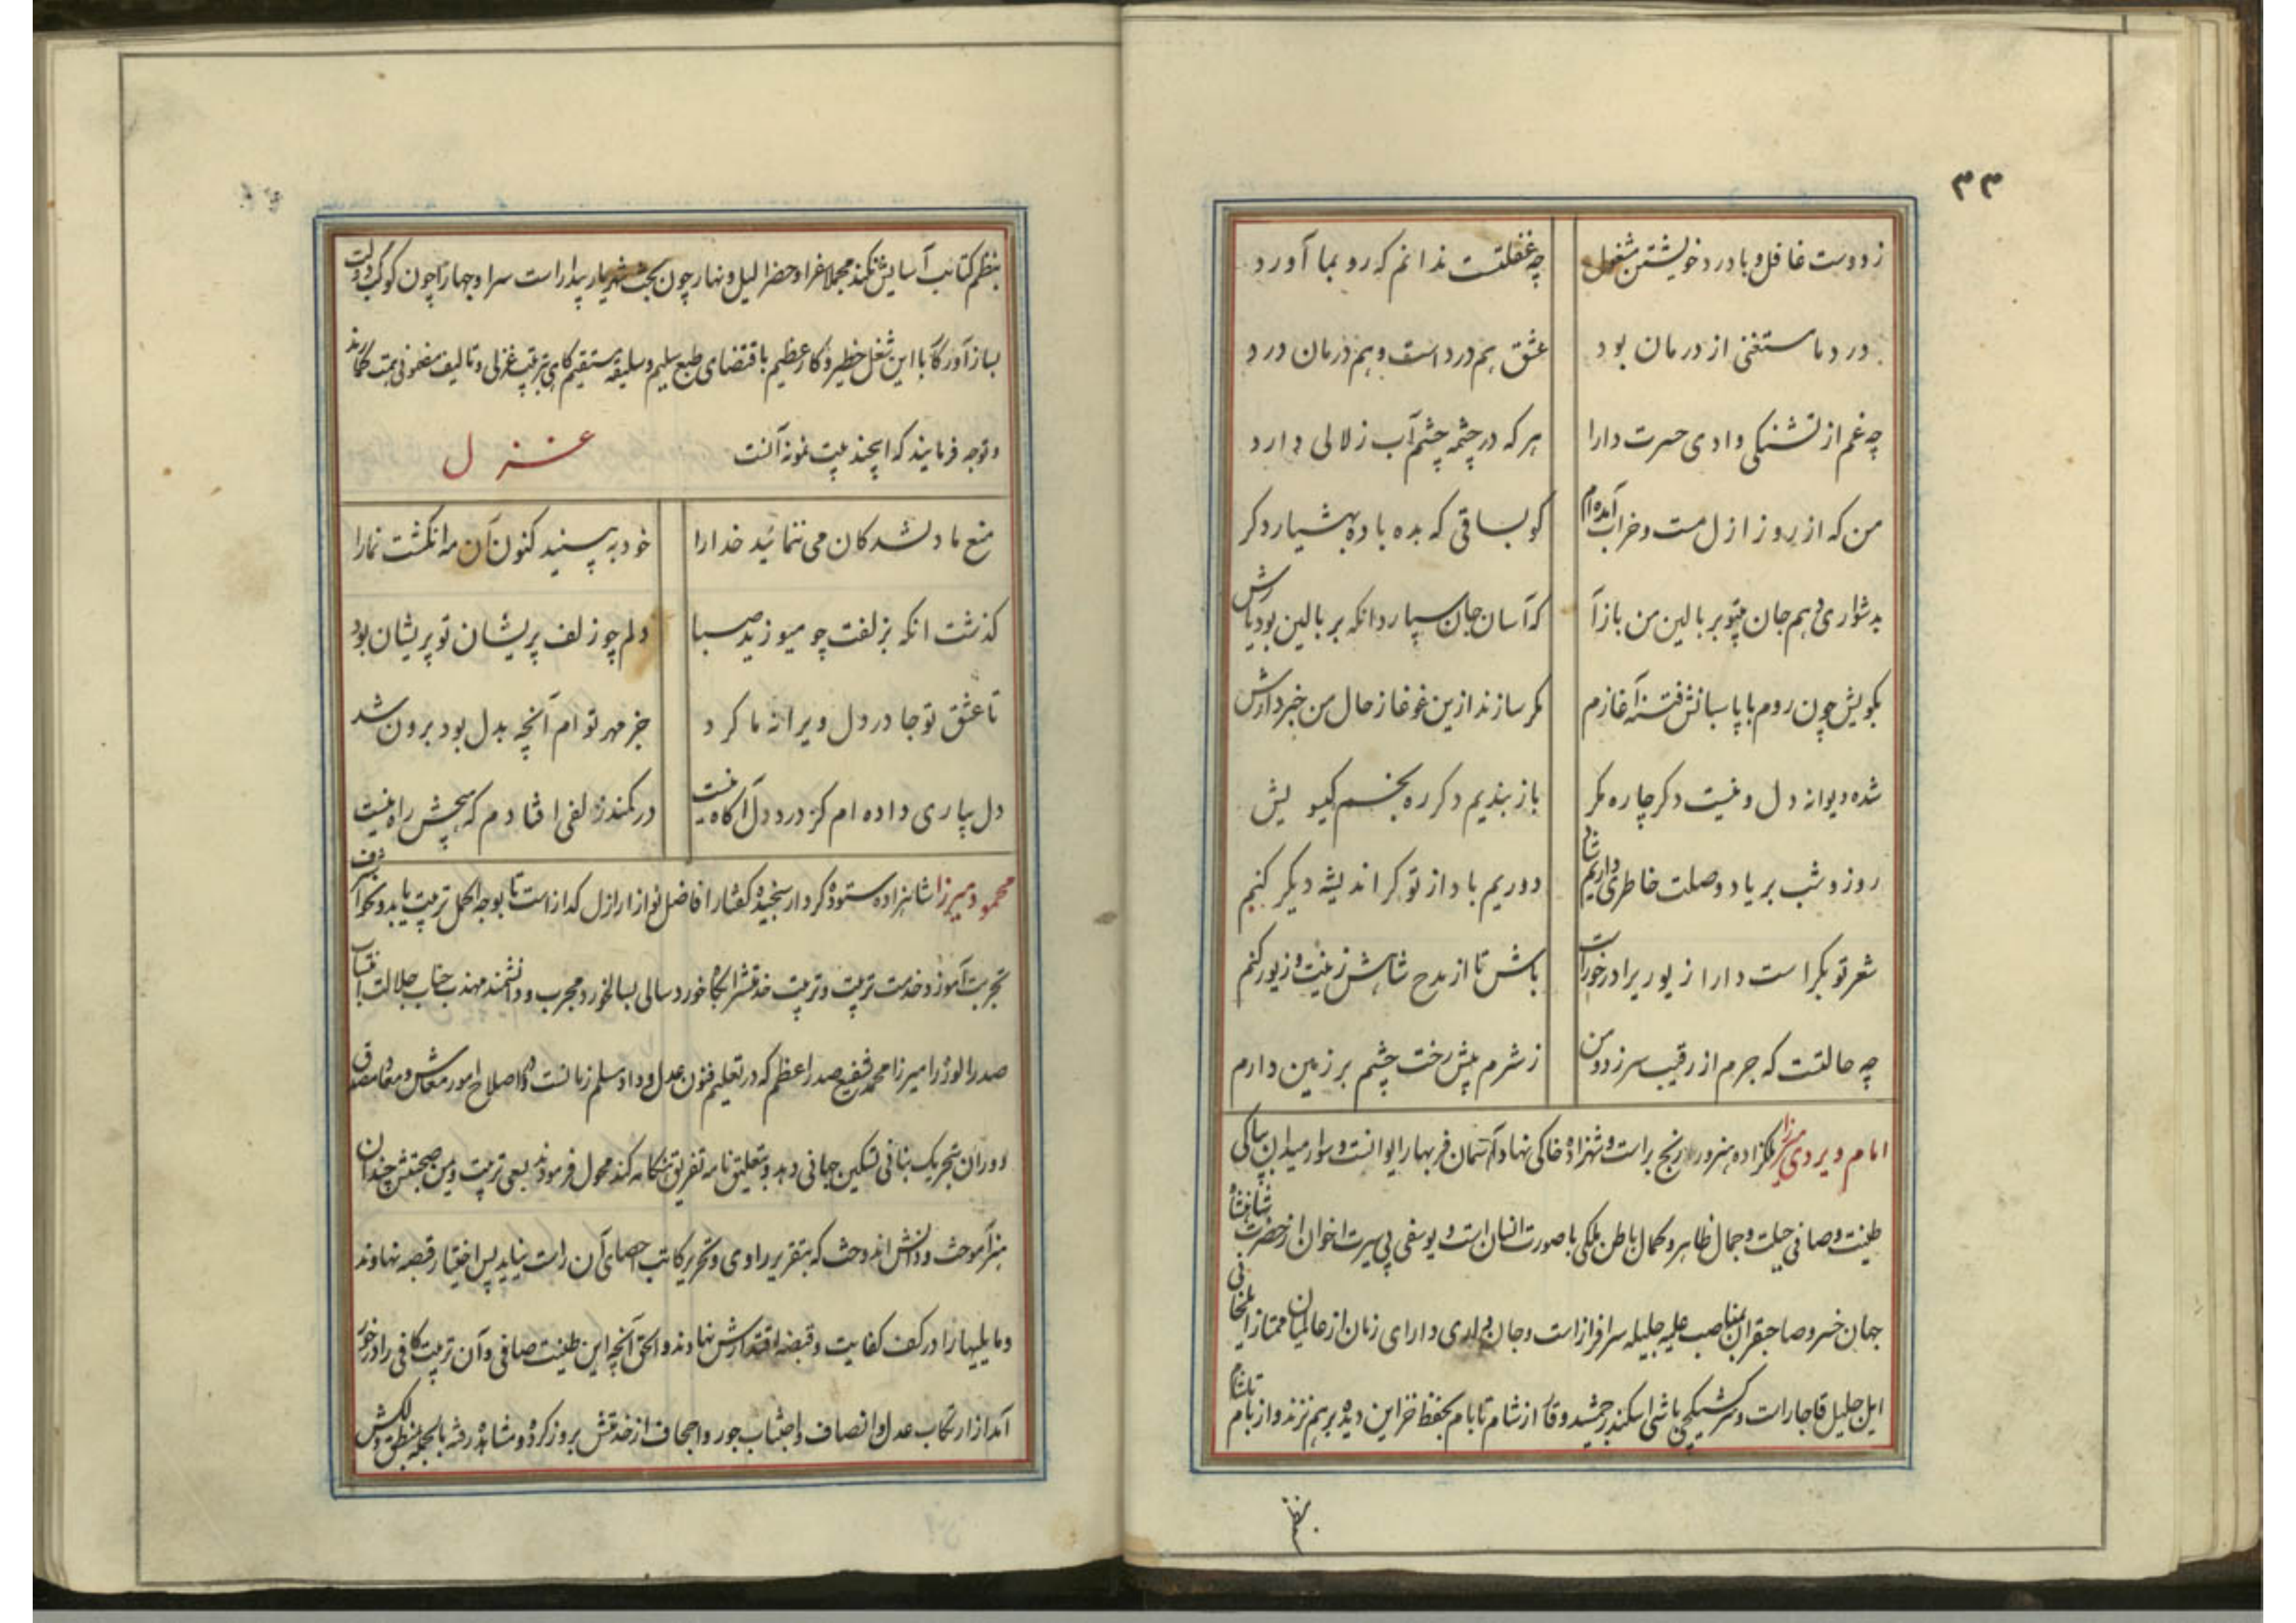 ۳۳
ز دوست غافل و با درد خویشتن مشغول چه غفلتست ندانم که رو بما آورد
درد ما مستغنی از درمان بود عشق هم درد است و هم درمان درد
چه غم از تشنکی وادی حسرت دارا هر که در چشمه چشم آب زلالی دارد
من که از روز ازل مست و خراب آمده‌ام کو بساقی که بده باده بهشیار دکر
بدشواری دهم جان بیتو بر بالین من بازآ که آسان جان سپارد انکه بر بالین بود یارش
بکویش چون روم با پاسبانش فتنه آغازم مکر سازند ازین غوغا ز حال من خبردارش
شده دیوانه دل و نیست دکر چاره مکر باز بندیم دکر ره بخم کیسویش
روز و شب بر یاد وصلت خاطری داریم شاد دور یم باد از تو کر اندیشه دیکر کنیم
شعر تو بکر است دارا زیور یرا درخوراست باش تا از مدح شاهش زینت و زیور کنم
چه حالتست که جرم از رقیب سر زد و من ز شرم پیش رخت چشم بر زمین دارم
امام ویردی میرزا ملکزاده هنرور رنج براست و شهزاده خاکی نهاد آسمان فر بهار ایوانست و سوار میدان پاکی
طینت و صافی جبلت و جمال ظاهر و کمال باطن ملکی با صورت انسان است و یوسفی بی سیرت اخوان از حضرت شاهنشاه
جهان خسرو صاحبقران بمناصب علیه جلیله سرافراز است و جان دارای زمان از عالمیان ممتاز ایلخانی
ایل جلیل قاجار است و سرکشیکچی باشی اسکندر جمشید وقار از شام تا بام بحفظ خزاین دیده برهم نزند و از بام تا شام
بنظم
بنظم کتائب آسایش نکند مجملا سفرا و حضرا لیل و نهار چون بخت شهریار بیدار است سرا و جهارا چون کوکب دولت
بساز آورکا با این شغل خطیر و کار عظیم باقتضای طبع سلیم و سلیقه مستقیم کاهی بترتیب غزلی و تالیف مضمونی همت کمارند
و توجه فرمایند که این چند بیت نمونه آنست غزل
منع ما دلشدکان می ننمائید خدا را خود به‌بینید کنون آن مه انکشت نما را
کذشت انکه بزلفت چو میوزید صبا دلم چو زلف پریشان تو پریشان بود
تا عشق تو جا در دل ویرانه ما کرد جز مهر توام آنچه بدل بود برون شد
دل بیاری داده‌ام کز درد دل آکاه نیست در کمند زلفی افتادم که هیچش راه نیست
محمود میرزا شاهزاده ستوده کردار سنجیده کفتار افاضل نواز اراذل کداز است تا بوجه اکمل تربیت یابد و نحو اشرف
تجربت آموزد خدمت تربیت و تربیت خدمتش را بکاه خورد سالی بسالخورد مجرب و دانشمند مهذب جناب جلالت انتساب
صدرالوزرا میرزا محمد شفیع صدر اعظم که در تعلیم فنون عدل و داد مسلم زمانست و در اصلاح امور معاش و معاد مصداق
دوران بتحریک بنانی تسکین جهانی دهد و بتعلیق نامه تفریق هنکامه کند محول فرمودند بسعی تربیت و یمن صحبتش چندان
هنر آموخت و دانش اندوخت که بتقریر راوی و تحریر کاتب احصای آن راست نیاید پس اختیار قصبه نهاوند
و مایلیها را در کف کفایت و قبضه اقتدارش نهادند و الحق آنچه این طینت صافی و آن تربیت کافی را درخور
آمد از ارتکاب عدل و انصاف و اجتناب جور و اجحاف از خدمتش بروز کرده و مشاهده رفته بالجمله منطق دلکش